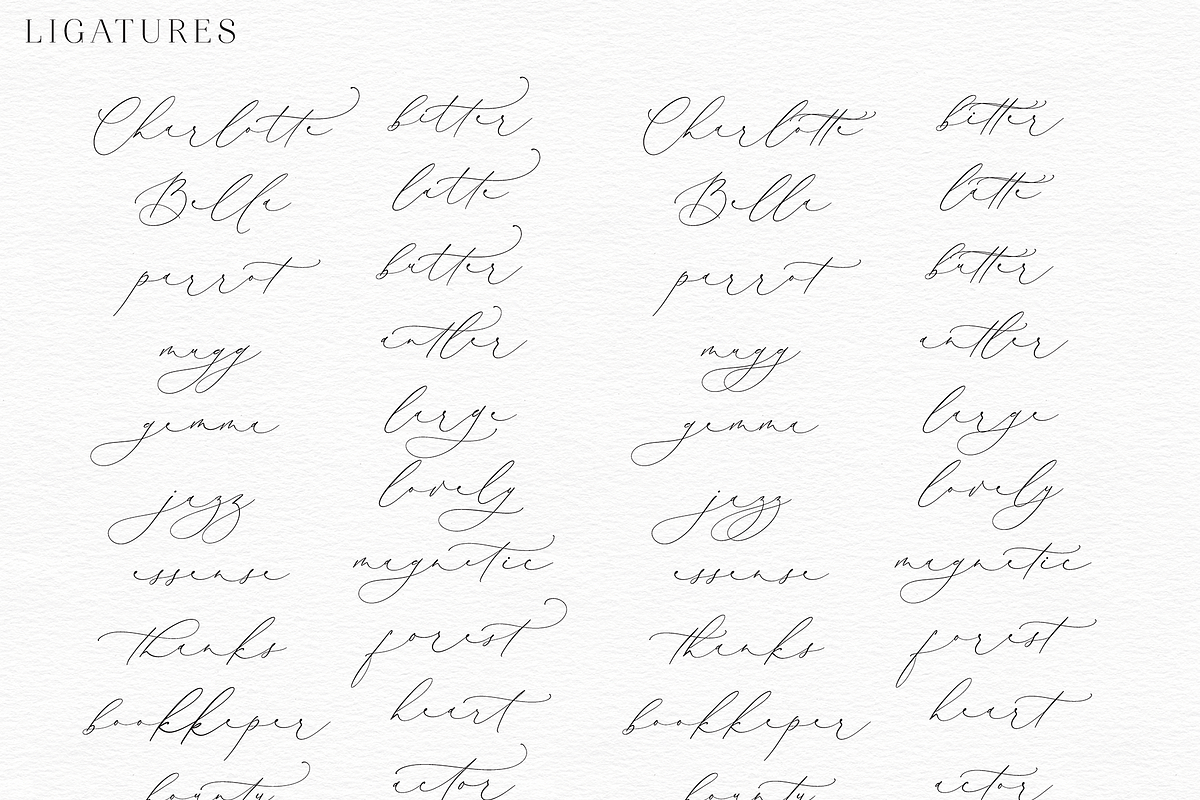 LIGATURES
Charlotte better Charlotte better
Bella latte Bella latte
parrot butter parrot butter
mugg antler mugg antler
gemma large gemma large
jazz lovely jazz lovely
essense magnetic essense magnetic
thanks forest thanks forest
bookkeper heart bookkeper heart
bounty actor bounty actor